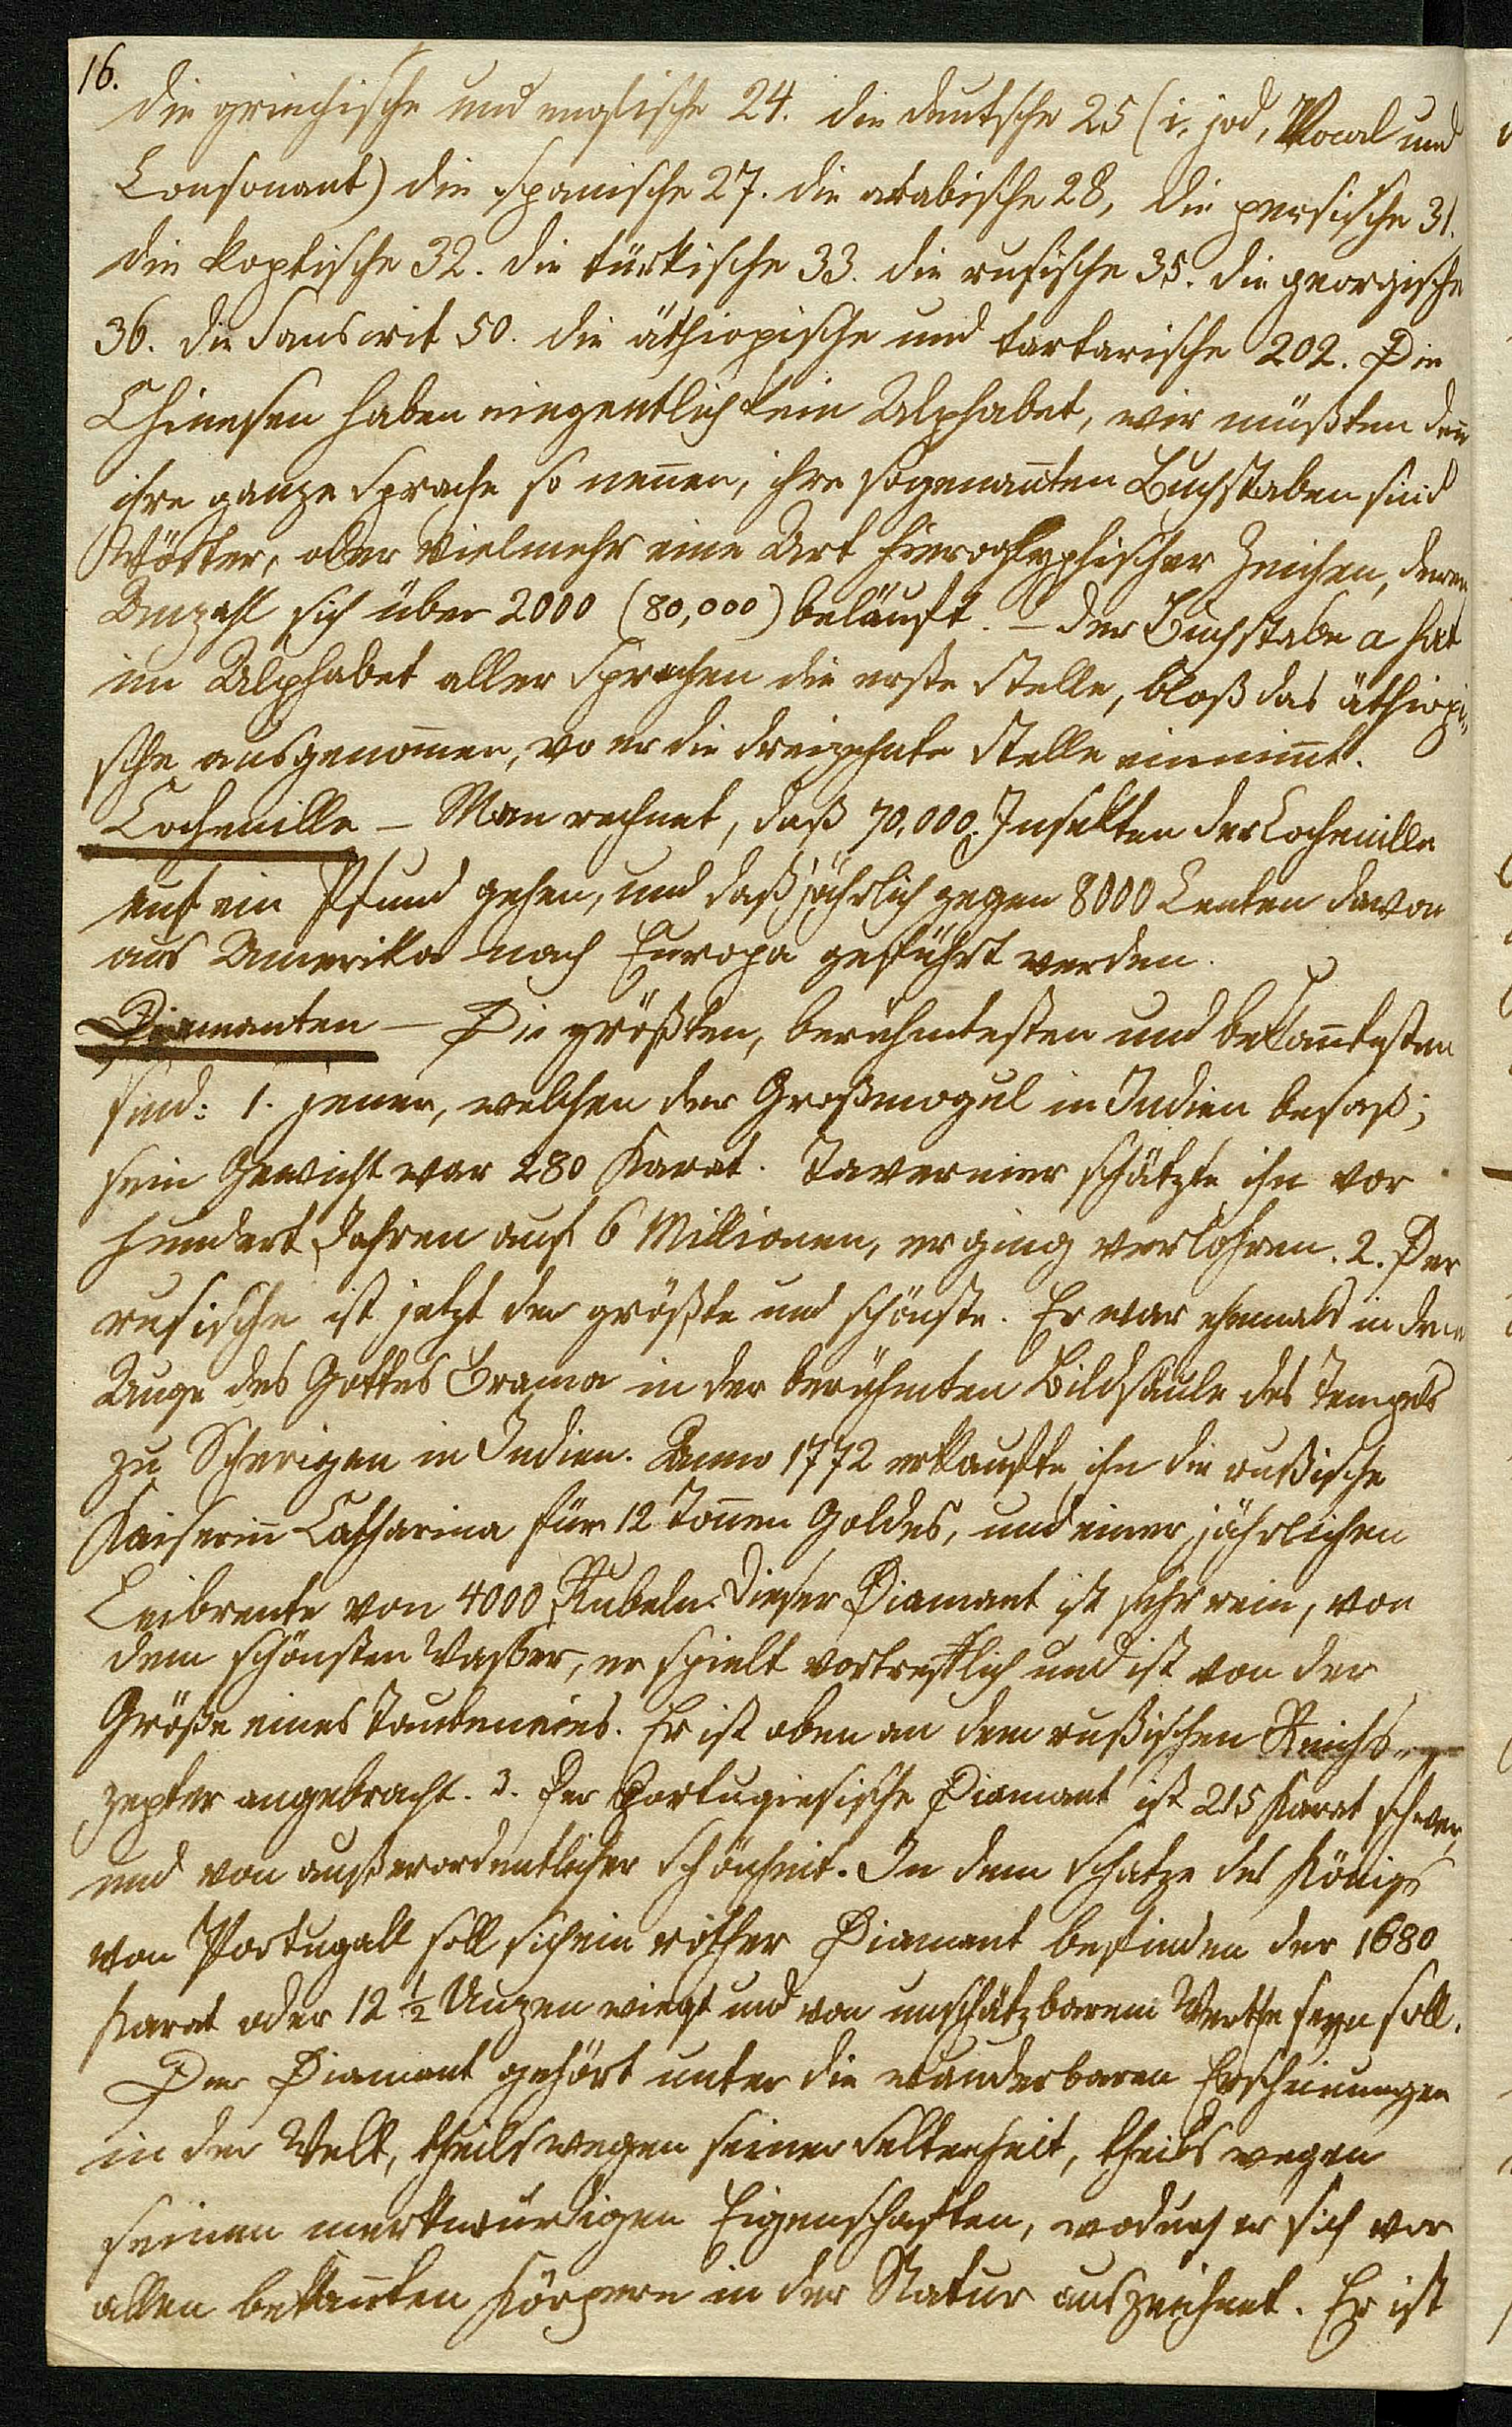 16.
die griechische und englische 24. die deutsche 25 (i, jod, Vocal und
Consonant) die spanische 27. die arabische 28, die persische 31.
die koptische 32. die türkische 33. die rusische 35. die georgische
36. die Sanscrit 50. die äthiopische und tartarische 202. Die
Chinesen haben eingentlich kein Alphabet, wir müßten deñ
ihre ganze Sprache so neñen, ihre sogenañten Buchstaben sind
Wörter, oder vielmehr eine Art hieroglyphischer Zeichen, deren
Anzahl sich über 2000 (80,000) beläuft. – der Buchstabe a hat
im Alphabet aller Sprachen die erste Stelle, bloß das äthiopi=
sche ausgenom̄en, wo er die dreizehnte Stelle einnim̄t.
Cochenille – Man rechnet, daß 70,000. Insekten der Cochenille
auf ein Pfund gehen, und daß jährlich gegen 8000 Centen davon
aus Amerika nach Europa geführt werden.
Diamanten – Die größten, berühmtesten und bekañtesten
sind: 1. jener, welchen der Großmogul in Indien besaß;
sein Gewicht war 280 Karat. Tavernier schätzte ihn vor
hundert Jahren auf 6 Millionen, er ging verlohren. 2. Der
rusische ist jetzt der größte und schönste. Er war ehemals in dem
Auge des Gottes Brama in der berühmten Bildsäule des Tempels
zu Scherigen in Indien. Anno 1772 erkaufte ihn die rußische
Kaiseriñ Catharina für 12 Toñen Goldes, und einer jährlichen
Leibrente von 4000 Rubeln. Dieser Diamant ist sehr rein, von
dem schönsten Wasser, er spielt vortreflich und ist von der
Größe eines Taubeneies. Er ist oben an dem rußischen Reichs=
zepter angebracht. 3. Der Portugiesische Diamant ist 215 Karat schwer,
und von außerordentlicher Schönheit. In dem Schatze des Königs
von Portugall soll sich ein rother Diamant befinden der 1680
Karat oder 12 ½ Unzen wiegt und von unschätzbarem Werthe seyn soll.
Der Diamant gehört unter die wunderbaren Erscheinungen
in der Welt, theils wegen seiner Seltenheit, theils wegen
seinen merkwürdigen Eigenschaften, wodurch er sich vor
allen bekañten Körpern in der Natur auszeichnet. Er ist